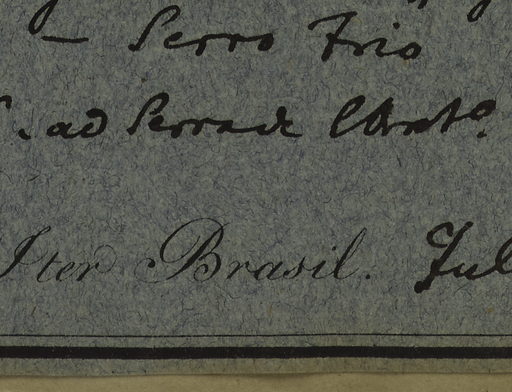 — Serro Frio
. ad Serra de
Iter Brasil. Jul